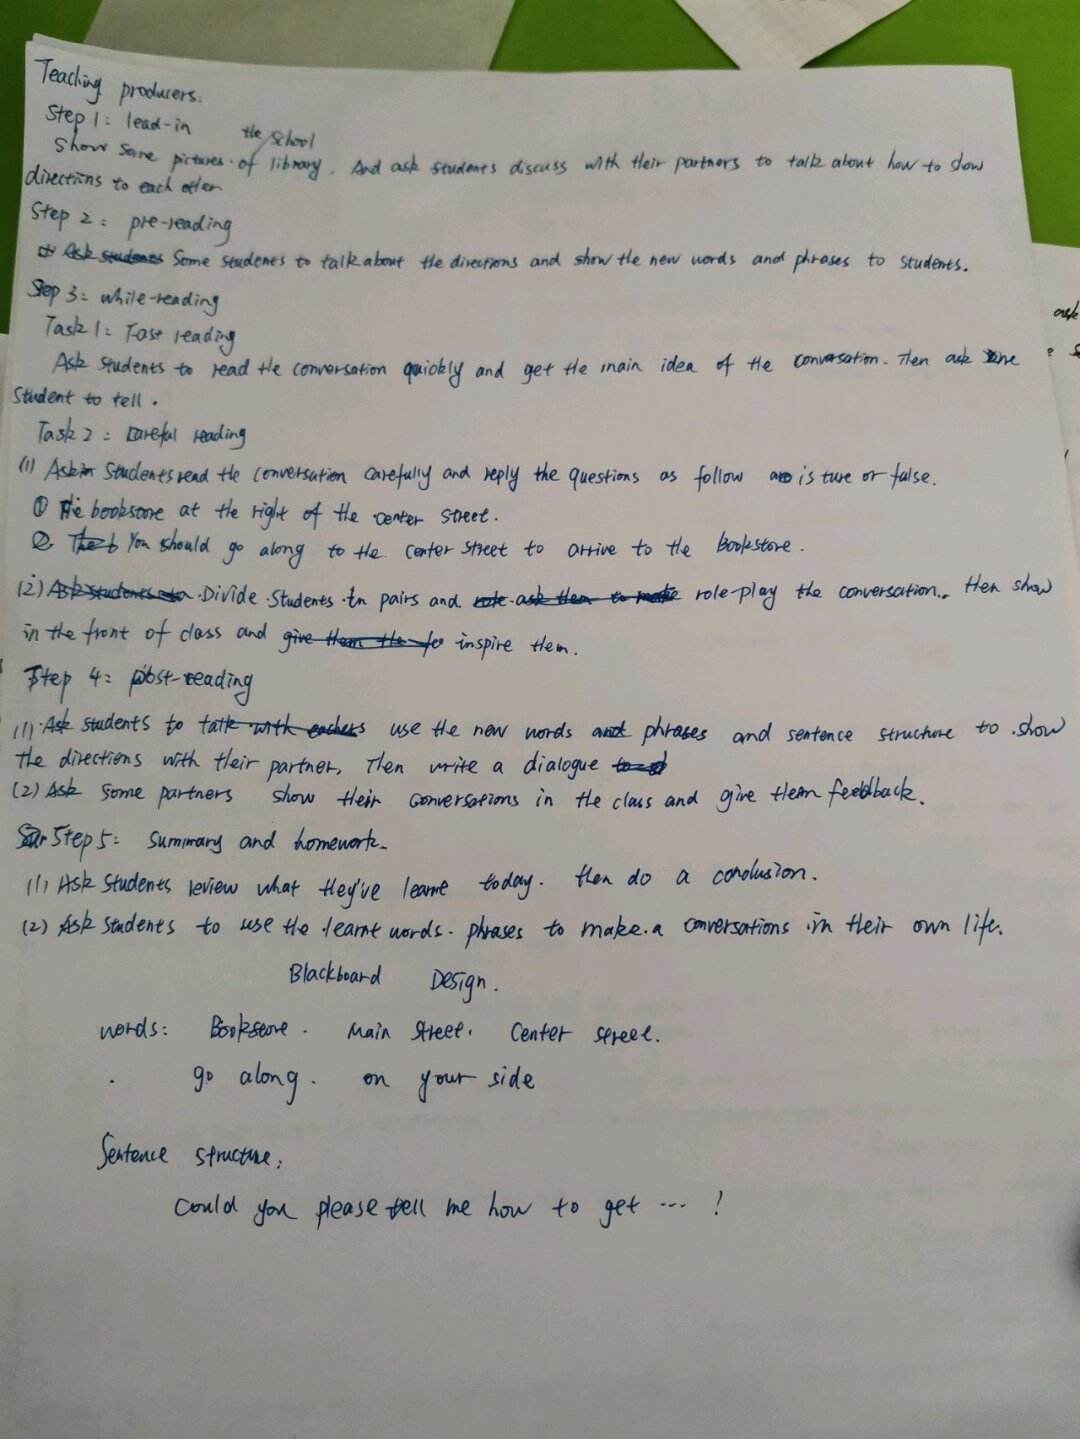 Teaching producers:
Step 1: lead-in
the school
Show some pictures of library. And ask students discuss with their partners to talk about how to show
directions to each other
Step 2: pre-reading
Some students to talk about the directions and show the new words and phrases to students.
Step 3: while-reading
Task 1: Fast reading
Ask students to read the conversation quickly and get the main idea of the conversation. Then ask one
student to tell.
Task 2: careful reading
(1) Ask students read the conversation carefully and reply the questions as follow is ture or false.
① The bookstore at the right of the center street.
② You should go along to the center street to arrive to the Bookstore.
(2) Divide students in pairs and role-play the conversation. then show
in the front of class and inspire them.
Step 4: post-reading
(1) Ask students to use the new words phrases and sentence structure to show
the directions with their partner, Then write a dialogue
(2) Ask some partners show their conversations in the class and give them feedback.
Step 5: Summary and homework.
(1) Ask students review what they've learnt today. then do a conclusion.
(2) Ask students to use the learnt words. phrases to make a conversations in their own life.
Blackboard Design.
words: Bookstore. Main Street. Center street.
go along. on your side
Sentence structure:
Could you please tell me how to get ... !
ask